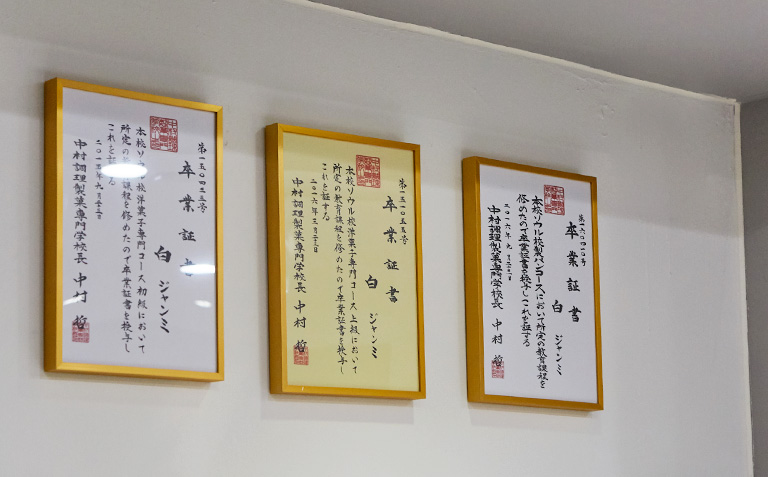 卒業証書
白 ジャンミ
本校ソウル校洋菓子専門コース初級において
所定の教育課程を修めたので卒業証書を授与し
これを証する
中村調理製菓専門学校長 中村 哲
第一五一〇五五号
卒業証書
白 ジャンミ
本校ソウル校洋菓子専門コース上級において
所定の教育課程を修めたので卒業証書を授与し
これを証する
二〇一六年三月二十三日
中村調理製菓専門学校長 中村 哲
卒業証書
白 ジャンミ
本校ソウル校製パンコースにおいて所定の教育課程を
修めたので卒業証書を授与しこれを証する
中村調理製菓専門学校長 中村 哲